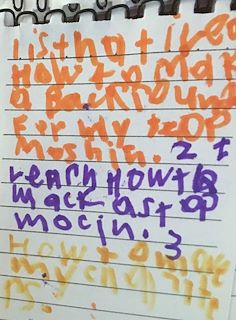 listhat
Howto Mak
a Backround
For my stop
Moshin. 2 t
Howto
mack astop
mocin. 3
How to
my